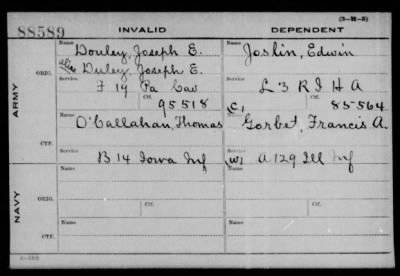 (3-31-5)
88589 INVALID DEPENDENT
Name Name
Douley, Joseph E. Joslin, Edwin
alias Duley, Joseph E.
ORIG. Service Service
F 19 Pa Cav L 3 R I H A
Ctf. Ctf.
95518 C, 85564
ARMY
Name Name
O'Callahan, Thomas Gorbet, Francis A.
CTF. Service Service
B 14 Iowa Inf W, A 129 Ill Inf
Name Name
ORIG.
Service Service
NAVY Ctf. Ctf.
Name Name
CTF.